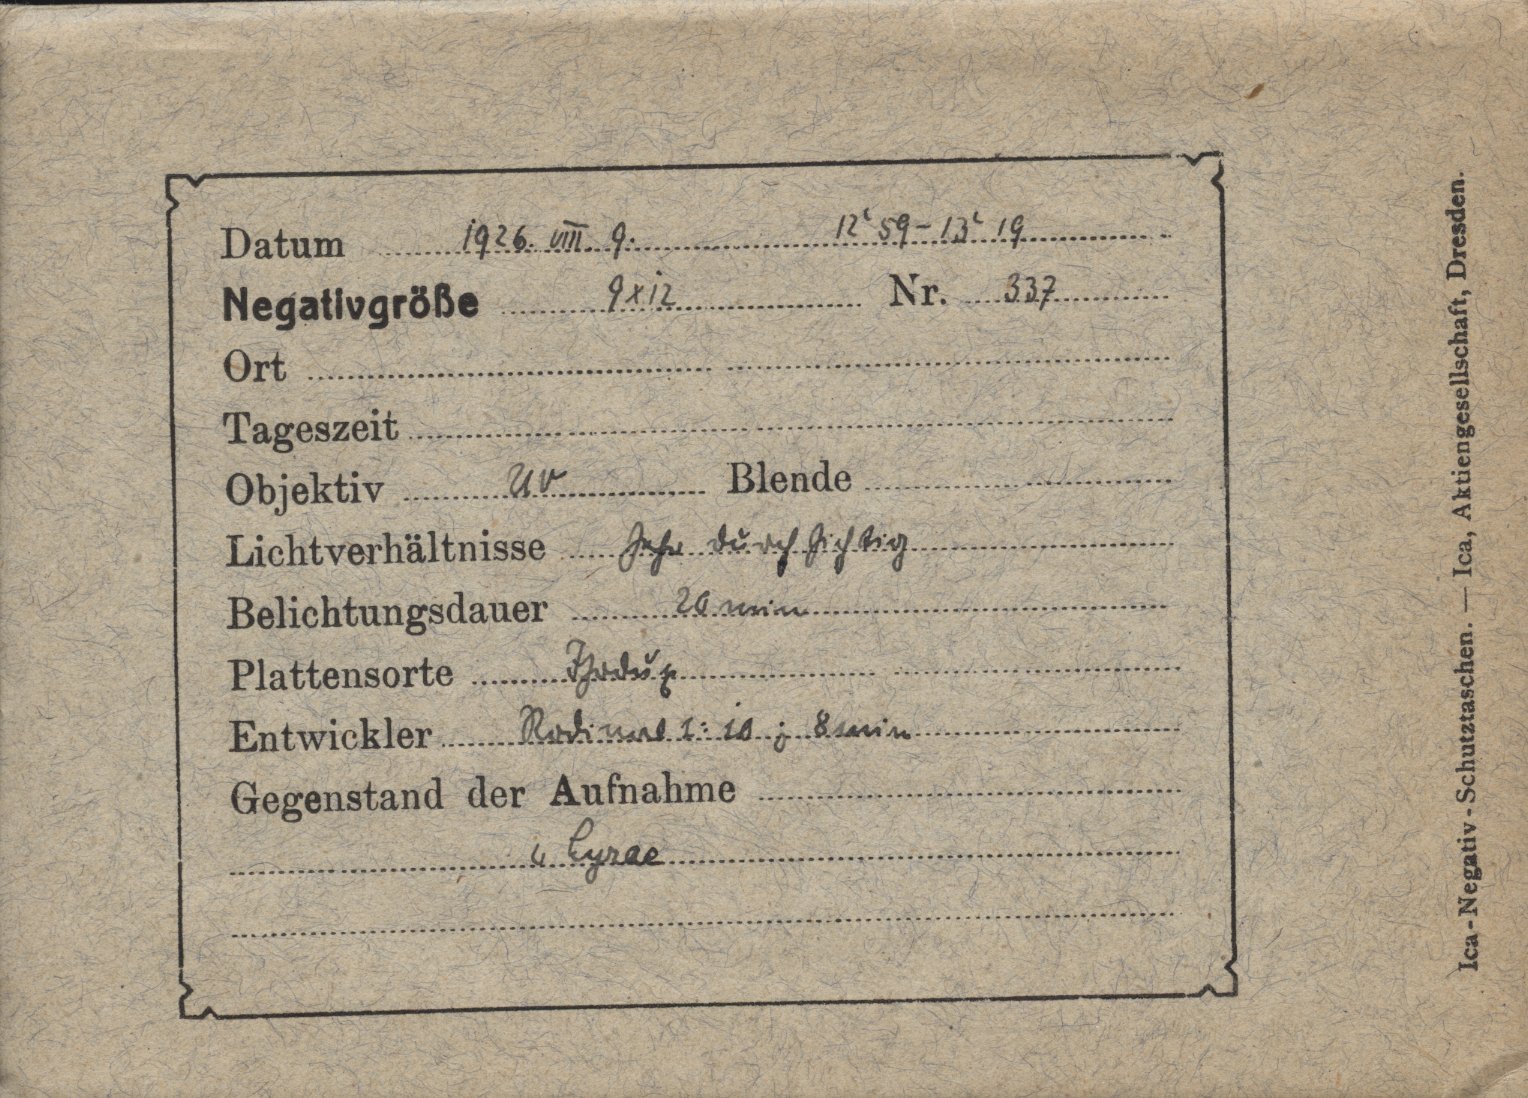 Datum 1926. VIII. 9. 12ʰ 59 - 13ʰ 19
Negativgröße 9x12 Nr. 337
Ort
Tageszeit
Objektiv UV Blende
Lichtverhältnisse sehr durchsichtig
Belichtungsdauer 20 min
Plattensorte
Entwickler Rodinal 1:10; 8 min
Gegenstand der Aufnahme
Lyrae
Ica-Negativ-Schutztaschen. — Ica, Aktiengesellschaft, Dresden.